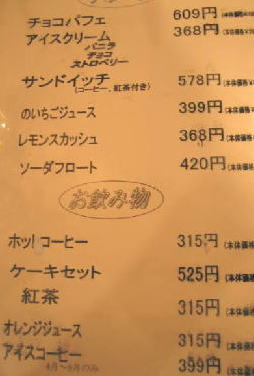 チョコパフェ 609円
アイスクリーム 368円
バニラ
チョコ
ストロベリー
サンドイッチ 578円
(コーヒー、紅茶付き)
のいちごジュース 399円 (本体価格
レモンスカッシュ 368円 (本体価格
ソーダフロート 420円 (本体価格
お飲み物
ホット コーヒー 315円 (本体価格
ケーキセット 525円 (本体価格
紅茶 315円 (本体価格
オレンジジュース 315円 (本体価格
アイスコーヒー 399円 (本体価格
4月~9月のみ